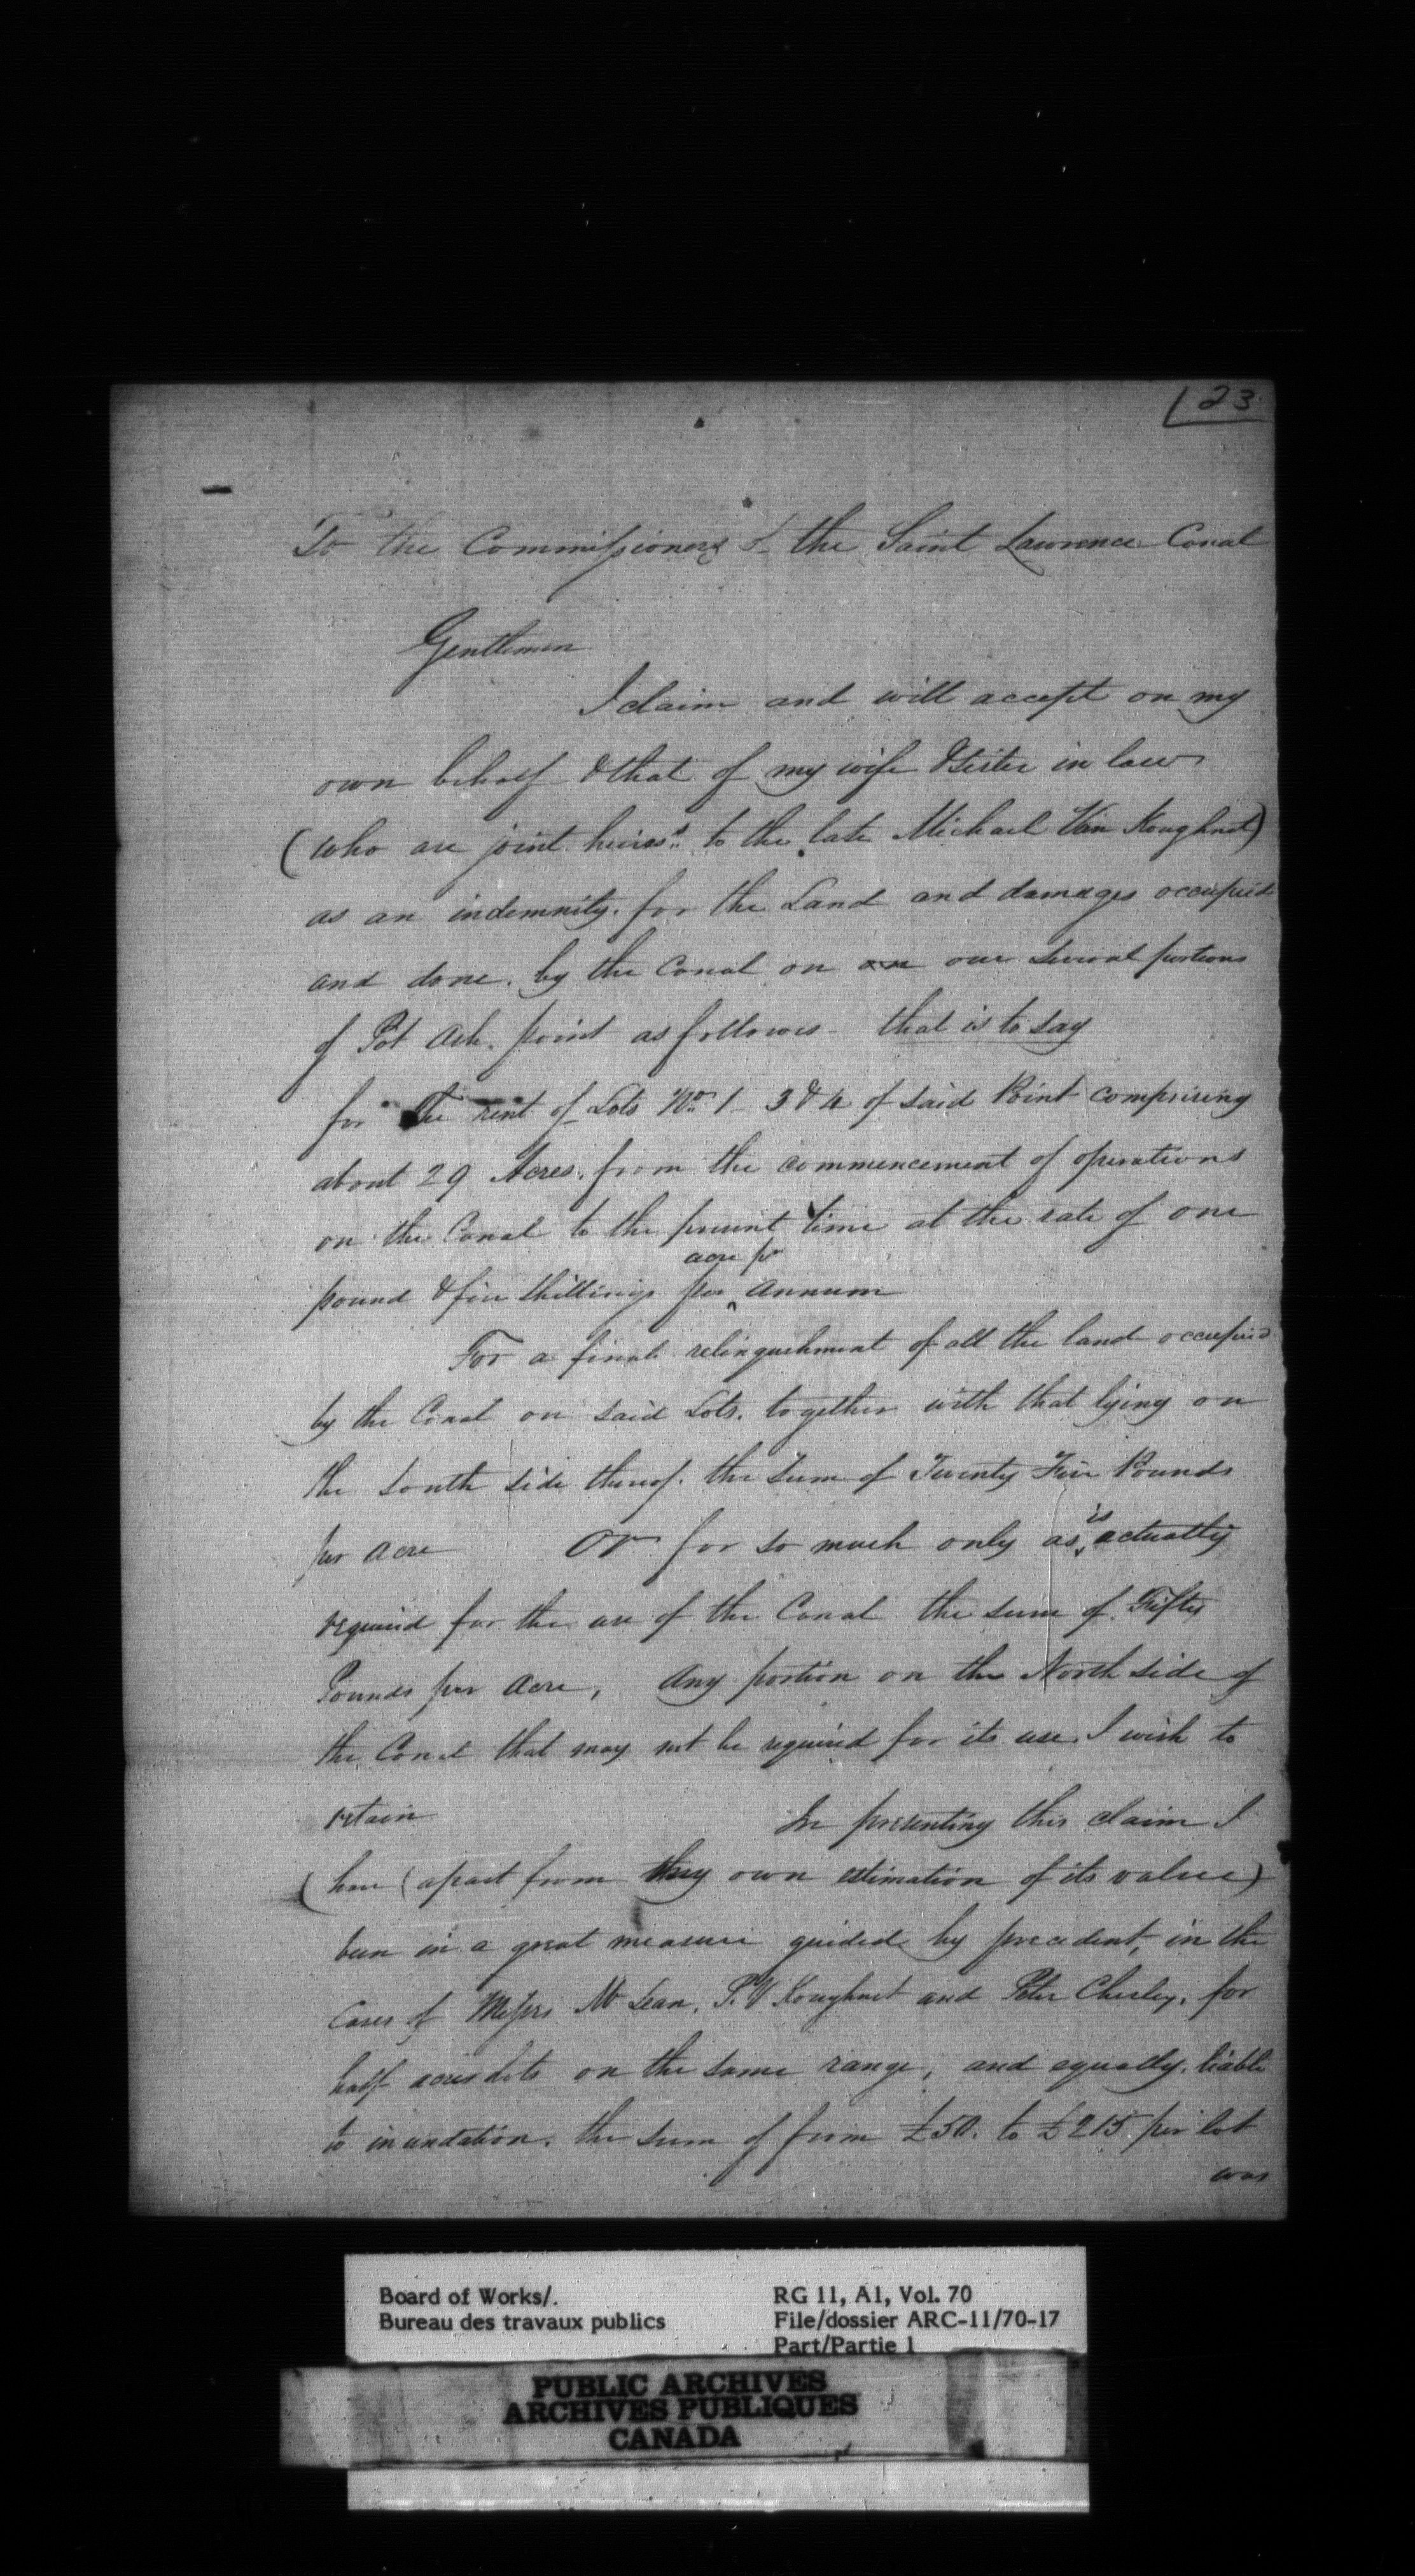 23
To the Commissioners of the Saint Lawrence Canal
Gentlemen
I claim and will accept on my
own behalf & that of my wife & Sister in law
(who are joint heiress to the late Michael Van Koughnet)
as an indemnity for the Land and damages occupied
and done by the Canal on our several portions
of Pot Ash point as follows - that is to say
for the rent of Lots No 1 - 3 & 4 of said Point comprising
about 29 Acres from the commencement of operations
on the Canal to the present time at the rate of one
acre pr
pound & five shillings per annum
For a final relinquishment of all the land occupied
by the Canal on said Lots. together with that lying on
the South side thereof. the Sum of Twenty Five Pounds
is
per acre or for so much only as actually
required for the use of the Canal the sum of Fifty
Pounds per Acre, Any portion on the North side of
the Canal that may not be required for its use I wish to
retain In presenting this claim I
have (apart from my own estimation of its value)
been in a great measure guided by precedent, in the
Cases of Messrs McLean, P. V Koughnet and Peter Chesley, for
half acres lots on the same range, and equally liable
to inundation. the sum of from £50. to £215 per lot
was
Board of Works/.
Bureau des travaux publics
RG 11, A1, Vol. 70
File/dossier ARC-11/70-17
Part/Partie 1
PUBLIC ARCHIVES
ARCHIVES PUBLIQUES
CANADA